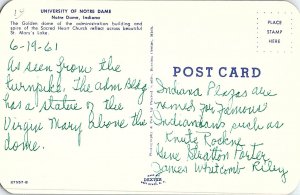 UNIVERSITY OF NOTRE DAME
Notre Dame, Indiana
The Golden dome of the administration building and
spire of the Sacred Heart Church reflect across beautiful
St. Mary's Lake.
PLACE
STAMP
HERE
6-19-61
As seen from the
turnpike, the adm Bldg.
has a statue of the
Virgin Mary above the
dome.
POST CARD
Indiana Plazas are
named for famous
Indianans, such as
Knute Rockne
Gene Stratton Porter
James Whitcomb Riley
DEXTER